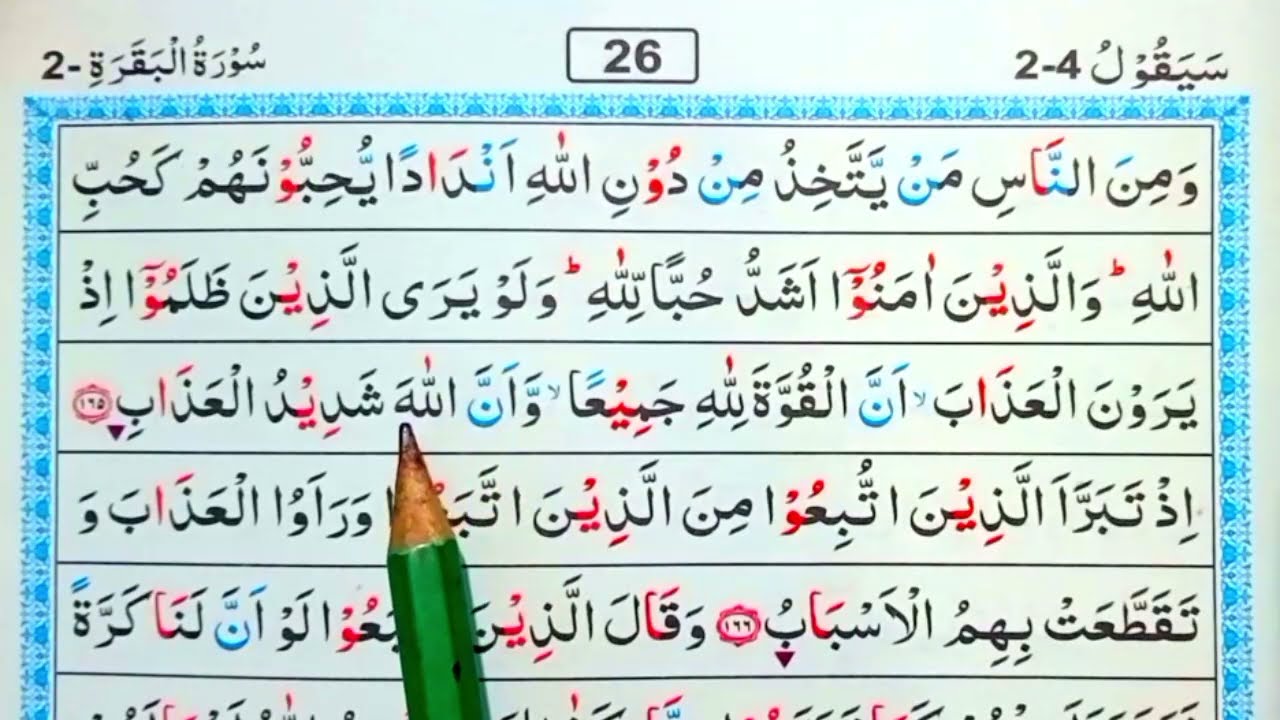 سَيَقُوْلُ 2-4 26 سُوْرَةُ الْبَقَرَةِ -2
وَمِنَ النَّاسِ مَنْ يَّتَّخِذُ مِنْ دُوْنِ اللّٰهِ اَنْدَادًا يُّحِبُّوْنَهُمْ كَحُبِّ
اللّٰهِ ؕ وَالَّذِيْنَ اٰمَنُوْۤا اَشَدُّ حُبًّا لِّلّٰهِ ؕ وَلَوْ يَرَى الَّذِيْنَ ظَلَمُوْۤا اِذْ
يَرَوْنَ الْعَذَابَ ۙ اَنَّ الْقُوَّةَ لِلّٰهِ جَمِيْعًا ۙ وَّاَنَّ اللّٰهَ شَدِيْدُ الْعَذَابِ ١٦٥
اِذْ تَبَرَّاَ الَّذِيْنَ اتُّبِعُوْا مِنَ الَّذِيْنَ وَرَاَوُا الْعَذَابَ وَ
تَقَطَّعَتْ بِهِمُ الْاَسْبَابُ ١٦٦ وَقَالَ الَّذِيْنَ لَوْ اَنَّ لَنَا كَرَّةً